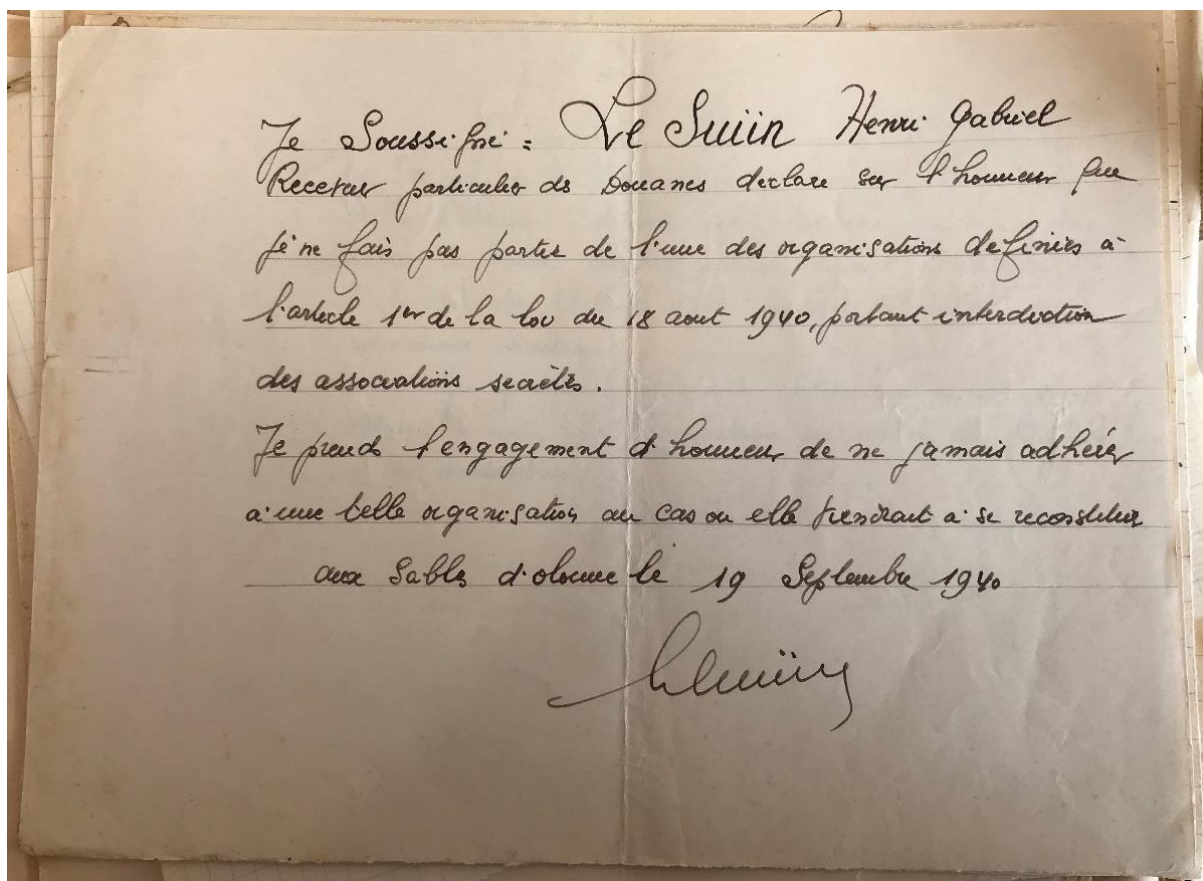 Je Soussigné = Le Suïin Henri Gabriel
Receveur particulier ds Douanes declare sur l'honneur que
je ne fais pas partie de l'une des organisations definies à
l'article 1er de la loi du 18 aout 1940, portant interdiction
des associations secrètes.
Je prends l'engagement d'honneur de ne jamais adhérer
a une telle organisation au cas ou elle viendrait a se reconstituer
aux Sables d'olonne le 19 Septembre 1940